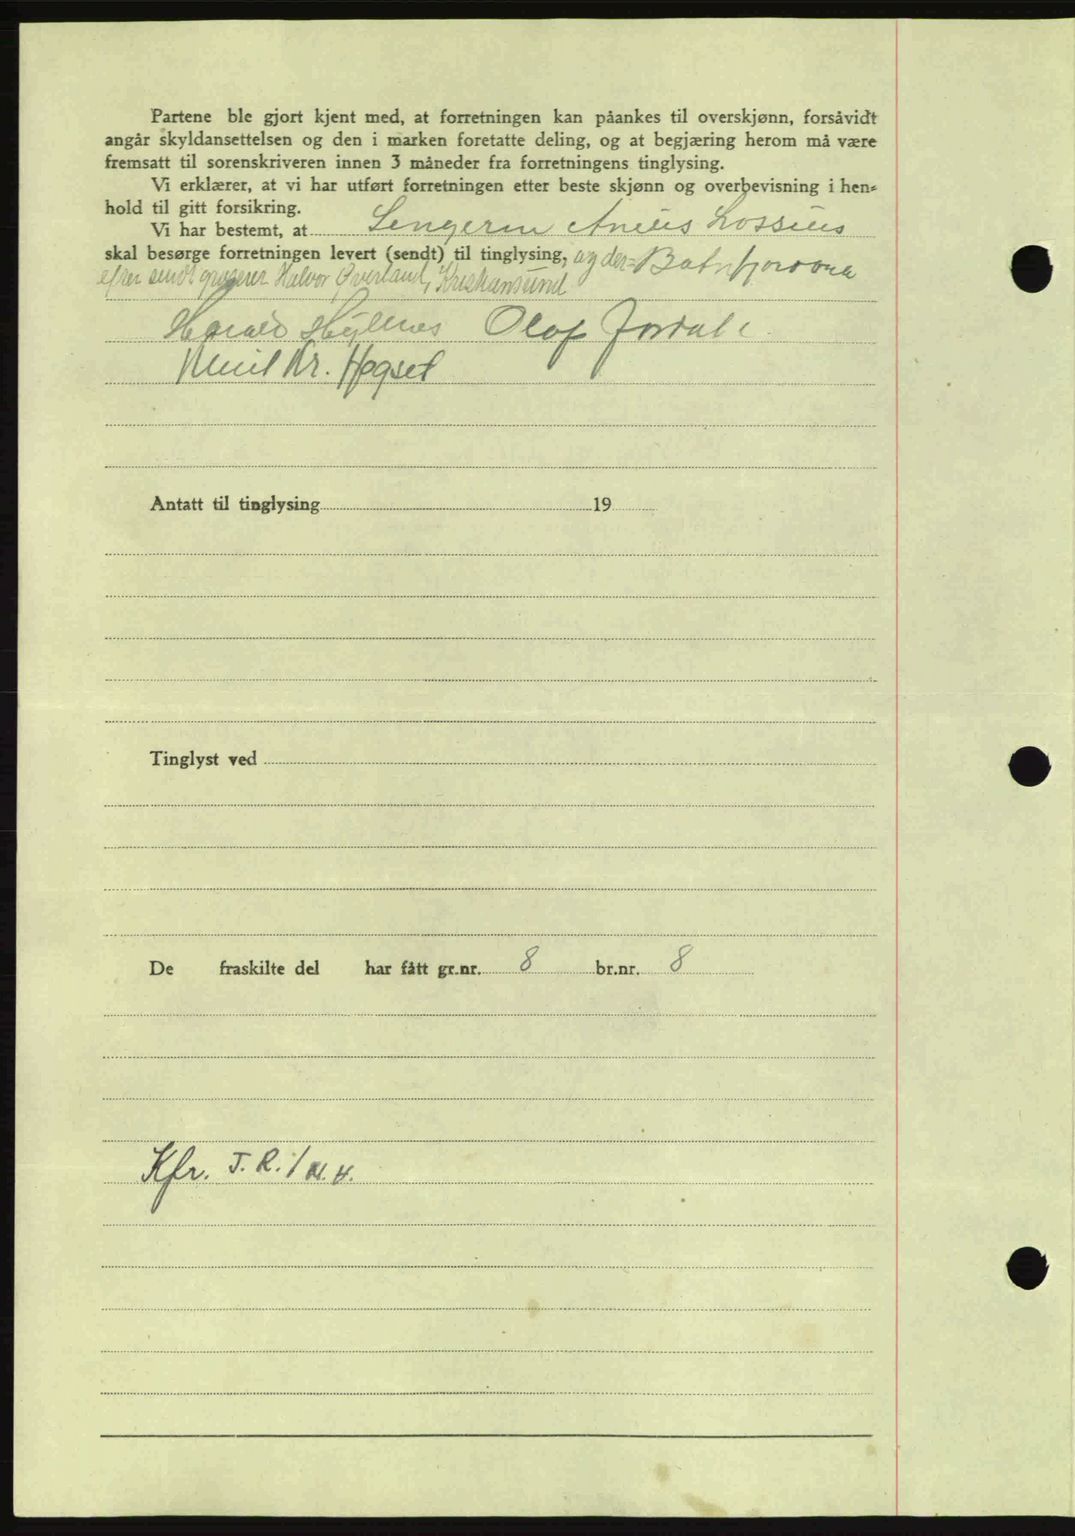 Partene ble gjort kjent med, at forretningen kan påankes til overskjønn, forsåvidt
angår skyldansettelsen og den i marken foretatte deling, og at begjæring herom må være
fremsatt til sorenskriveren innen 3 måneder fra forretningens tinglysing.
Vi erklærer, at vi har utført forretningen etter beste skjønn og overbevisning i hen=
hold til gitt forsikring.
Vi har bestemt, at Lossius
skal besørge forretningen levert (sendt) til tinglysing, og der= Batnfjordøra
efter sendt Halvor Øverland, Kristiansund
Harald Olaf
Kr. Høgset
Antatt til tinglysing 19
Tinglyst ved
De fraskilte del har fått gr.nr. 8 br.nr. 8
Kfr. J. R. / H.